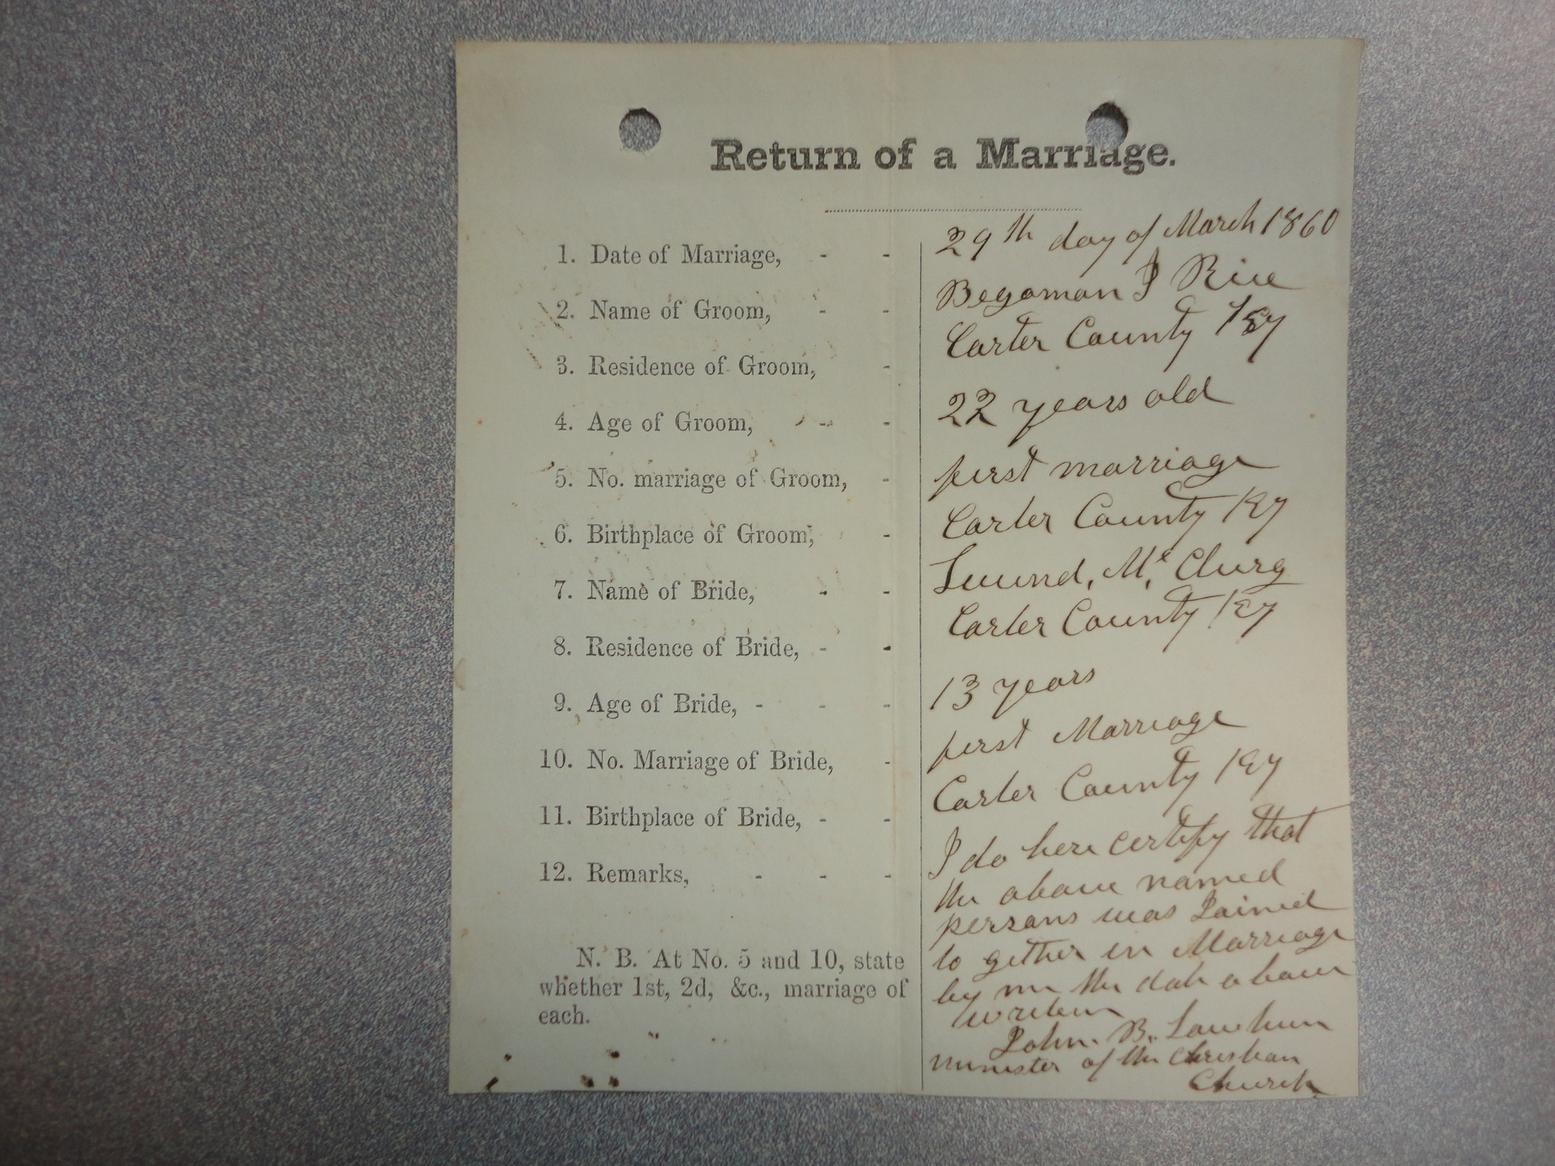 Return of a Marriage.
1. Date of Marriage, - - 29th day of March 1860
2. Name of Groom, - - Begaman J Rice
3. Residence of Groom, - Carter County Ky
4. Age of Groom, - - 22 years old
5. No. marriage of Groom, - first marriage
6. Birthplace of Groom, - Carter County Ky
7. Name of Bride, - - McClurg
8. Residence of Bride, - - Carter County Ky
9. Age of Bride, - - - 13 years
10. No. Marriage of Bride, - first Marriage
11. Birthplace of Bride, - - Carter County Ky
12. Remarks, - - - I do here certify that
the above named
persans was Joined
to gether in Marriage
by me the date above
writen
John. B. Lawhun
minister of the Christian
Church
N. B. At No. 5 and 10, state
whether 1st, 2d, &c., marriage of
each.